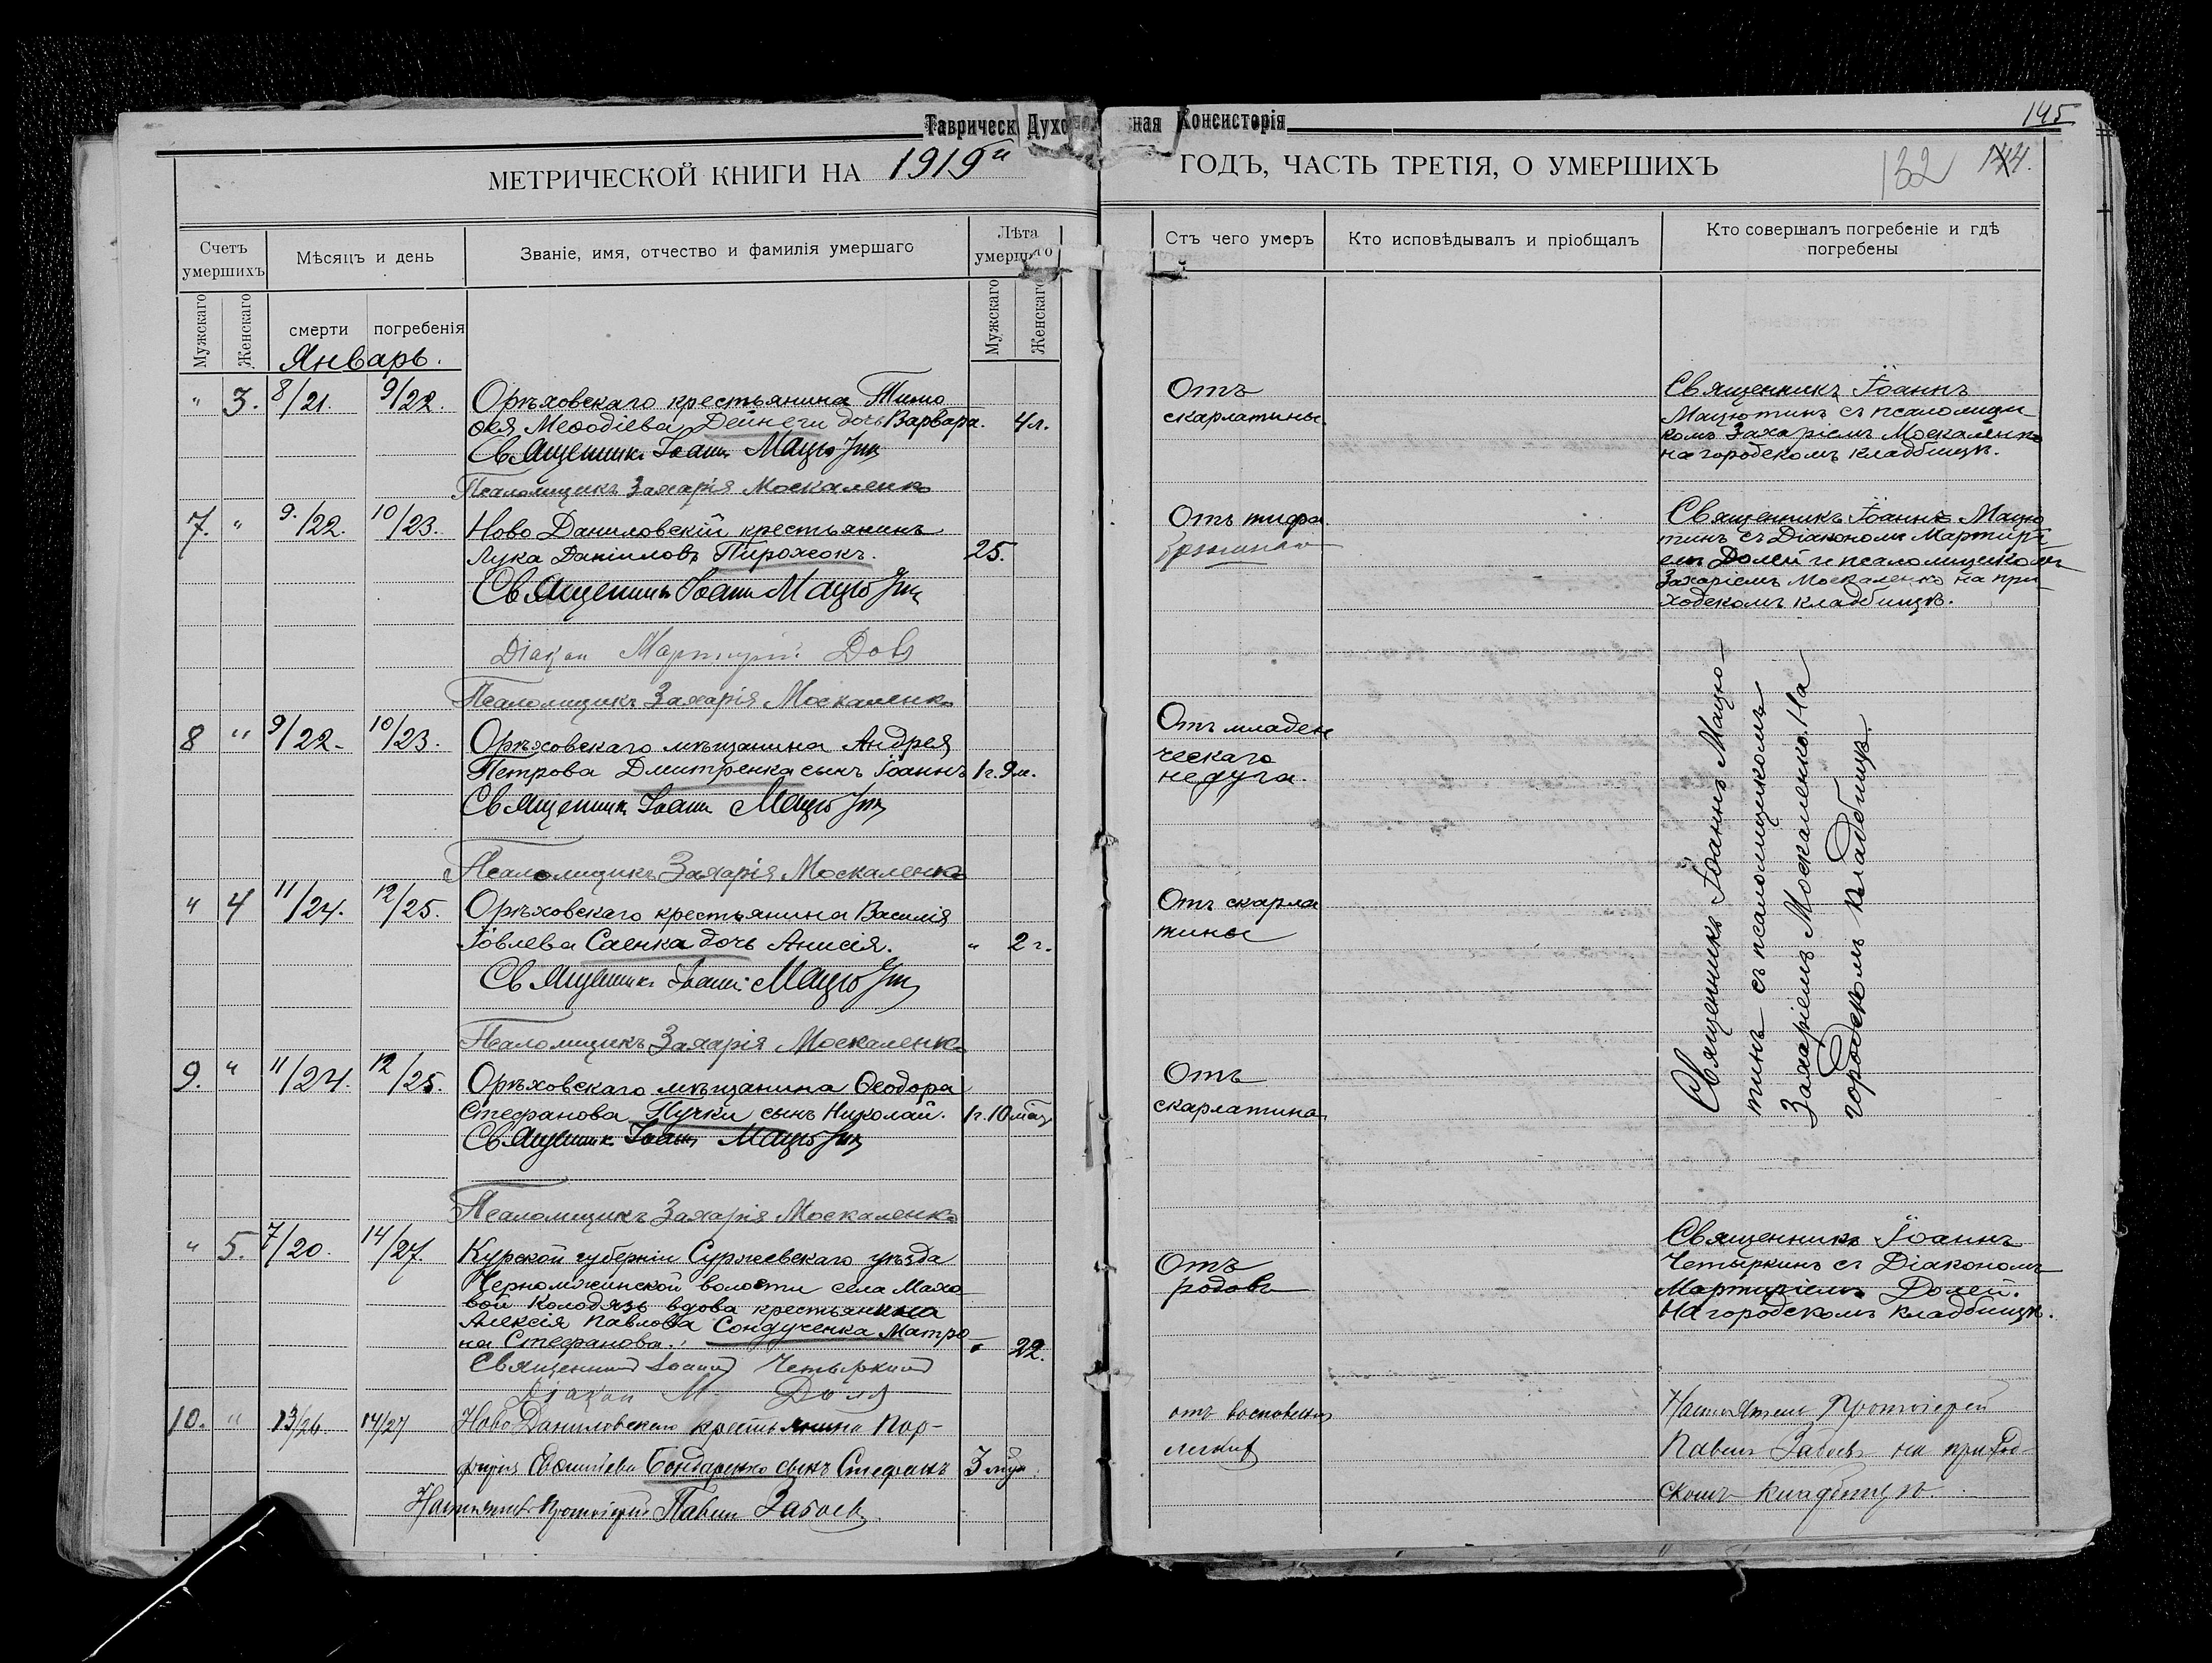 Таврическ Духо ная Консисторія
145
МЕТРИЧЕСКОЙ КНИГИ НА 1919й ГОДЪ, ЧАСТЬ ТРЕТІЯ, О УМЕРШИХЪ
132 144.
Счетъ умершихъ
Мѣсяцъ и день
Званіе, имя, отчество и фамилія умершаго
Лѣта умершаго
Отъ чего умеръ
Кто исповѣдывалъ и пріобщалъ
Кто совершалъ погребеніе и гдѣ погребены
Мужскаго
Женскаго
смерти
погребенія
Мужскаго
Женскаго
Январь.
" 3. 8/21. 9/22. Орѣховскаго крестьянина Тимо
ѳея Меѳодіева Дейнеги дочь Варвара. 4 л.
Священникъ Іоаннъ Мацютин
Псаломщикъ Захарія Москаленко
Отъ
скарлатины.
Священникъ Іоаннъ
Мацютинъ съ псаломщи
комъ Захаріемъ Москаленко
на городскомъ кладбищѣ.
7. " 9/22. 10/23. Ново Даниловскій крестьянинъ
Лука Даніиловъ Пирожокъ. 25.
Священникъ Іоаннъ Мацютин
Діакон Мартирій Доля
Псаломщикъ Захарія Москаленко
Отъ тифа
брюшного
Священникъ Іоаннъ Мацю
тинъ съ Діакономъ Мартирі
емъ Долей и псаломщикомъ
Захаріемъ Москаленко на при
ходскомъ кладбищѣ.
8 " 9/22. 10/23. Орѣховскаго мѣщанина Андрея
Петрова Дмитренка сынъ Іоаннъ 1 г. 9 м.
Священник Іоанн Мацютин
Псаломщикъ Захарія Москаленко
Отъ младен
ческаго
недуга.
" 4 11/24. 12/25. Орѣховскаго крестьянина Василія
Іовлева Саенка дочь Анисія. " 2 г.
Священник Іоанн Мацютин
Псаломщикъ Захарія Москаленко
Отъ скарла
тины
Священникъ Іоаннъ Мацю-
тинъ съ псаломщикомъ
Захаріемъ Москаленко. На
городскомъ кладбищѣ.
9. " 11/24. 12/25. Орѣховскаго мѣщанина Ѳеодора
Стефанова Пучки сынъ Николай. 1 г. 10 мѣц
Священник Іоанн Мацютин
Псаломщикъ Захарія Москаленко
Отъ
скарлатина
" 5. 7/20. 14/27. Курской губерніи Суржевскаго уѣзда
волости села Махо
вой Колодязь вдова крестьянина
Алексія Павлова Сондученка Матро
на Стефанова. " 22.
Священникъ Іоаннъ Четыркинъ
Діакон М. Доля
Отъ
родовъ
Священникъ Іоаннъ
Четыркинъ съ Діакономъ
Мартиріемъ Долей.
На городскомъ кладбищѣ.
10. " 13/26. 14/27 Ново-Даниловскаго крестьянина Пор-
фирія Бондаренко сынъ Стефанъ 3 мѣц.
Настоятель Протоіерей Павелъ
отъ воспаленія
легкихъ
Настоятель Протоіерей
Павелъ на приход-
скомъ кладбищѣ.